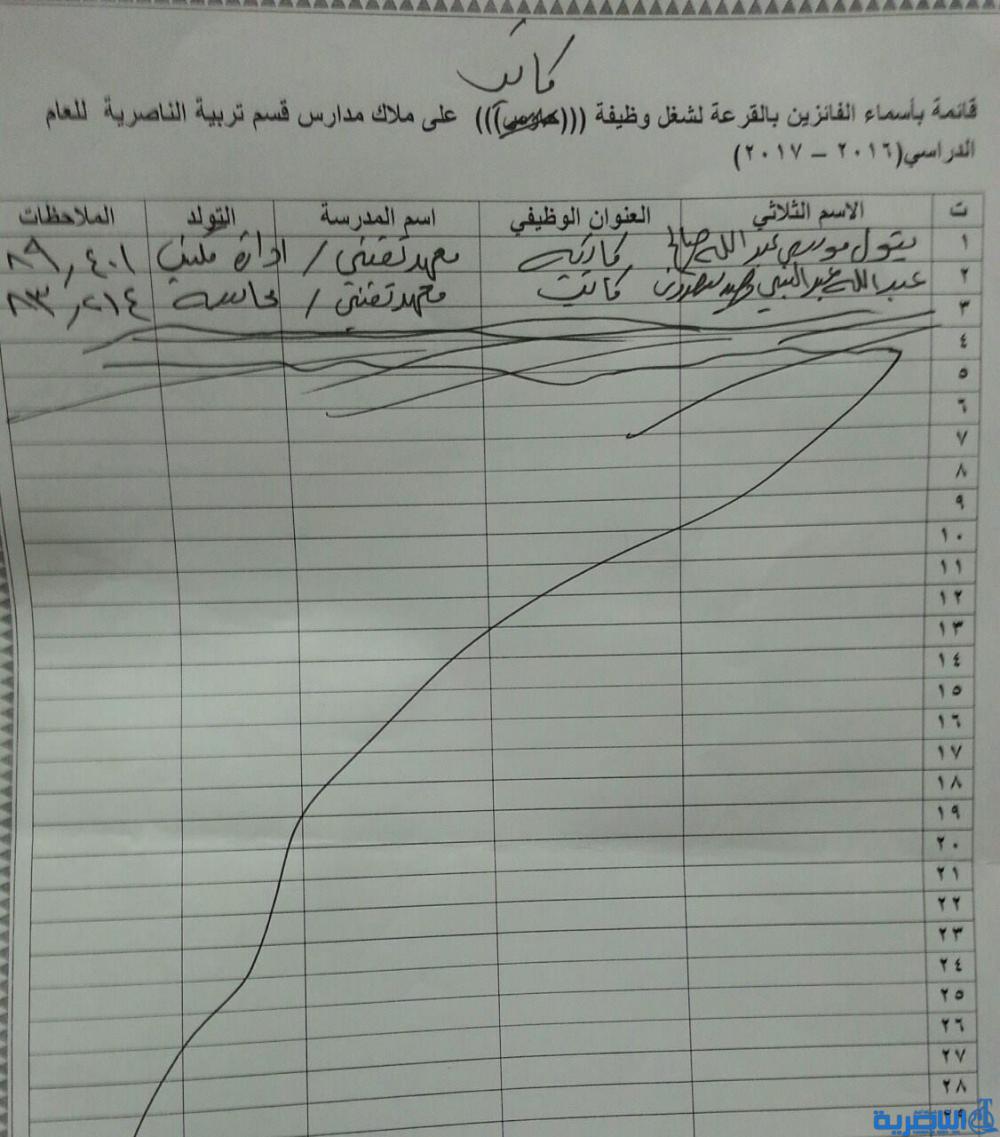 كاتب
قائمة بأسماء الفائزين بالقرعة لشغل وظيفة ((( ))) على ملاك مدارس قسم تربية الناصرية للعام
الدراسي(٢٠١٦ – ٢٠١٧)
ت الاسم الثلاثي العنوان الوظيفي اسم المدرسة التولد الملاحظات
١ بتول موسى عبد الله صالح كاتبة معهد تقني / ادارة مكتب ٨٩,٤٠١
٢ عبد الله عبد النبي كاتب معهد تقني / محاسبة ٨٣,٢١٤
٣
٤
٥
٦
٧
٨
٩
١٠
١١
١٢
١٣
١٤
١٥
١٦
١٧
١٨
١٩
٢٠
٢١
٢٢
٢٣
٢٤
٢٥
٢٦
٢٧
٢٨
٢٩
الناصرية